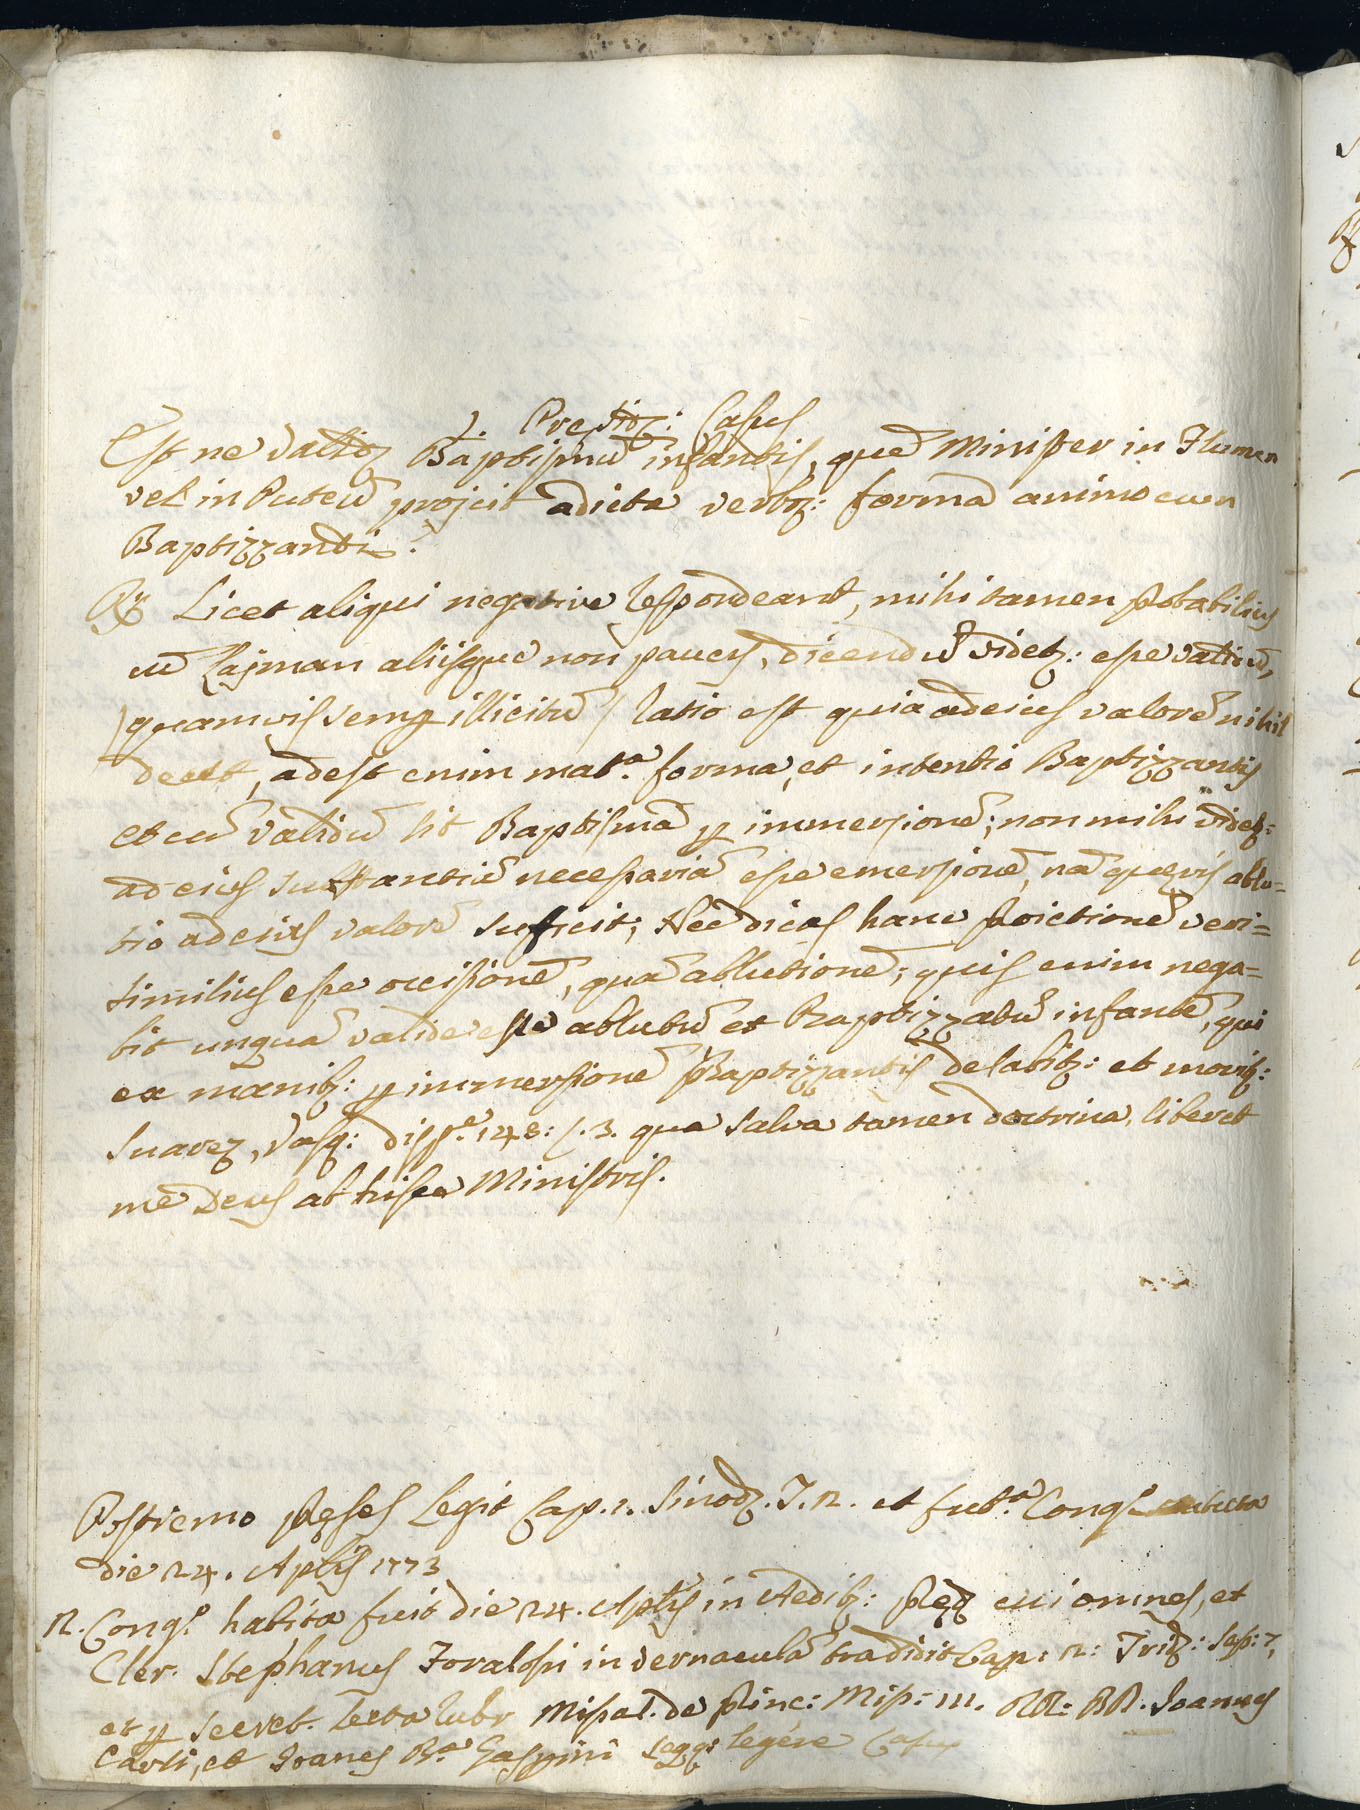 1. Pres. Casus
Est ne validū Baptismū infantis, quē Minister in Flumen
vel in Puteū projcit adicta verbor: formā animo eum
Baptizzandi?
Rx Licet aliqui negative respondeant, mihi tamen pbabilius
cū Lajman aliisque non paucis, dicendū videt: esse validū,
/quamvis semp illicitū/ ratio est quia ad eius valorē nihil
deest, adest enim mata. forma, et intentio Baptizzantis
et cū validū sit Baptismā p immersionē; non mihi videt:
ad eius substantiā necessariā esse emersionē, nā quævis ablu=
tio ad eius valorē sufficit; Nec dicas hanc pictionē veri=
similius esse occisionē, quā ablutionē; quis enim nega=
bit unquā valide esse ablutū et Baptizzatū infantē, qui
ex manib: p immersionē Baptizzantis delabit: et morit:
Suarez, Vasq: disp.e 148: c. 3. qua salva tamen doctrina, liberet
me Deus ab hisce Ministris.
Postremo Legit Cap. 1. Sinod. T. 2. et futa. Congo. habita
die 24. Aplis 1773
2. Congo. habita fuit die 24. Aplis in Aedib: omnes, et
Cler. Stephanus in vernaculā tradidit Cap: 2: Trid: Sess: 7,
et p secret. lecta rubr Missal. de Miss: III. RR: DD. Joannes
Carli, et Joanes Ba. Gaspini legere Casus